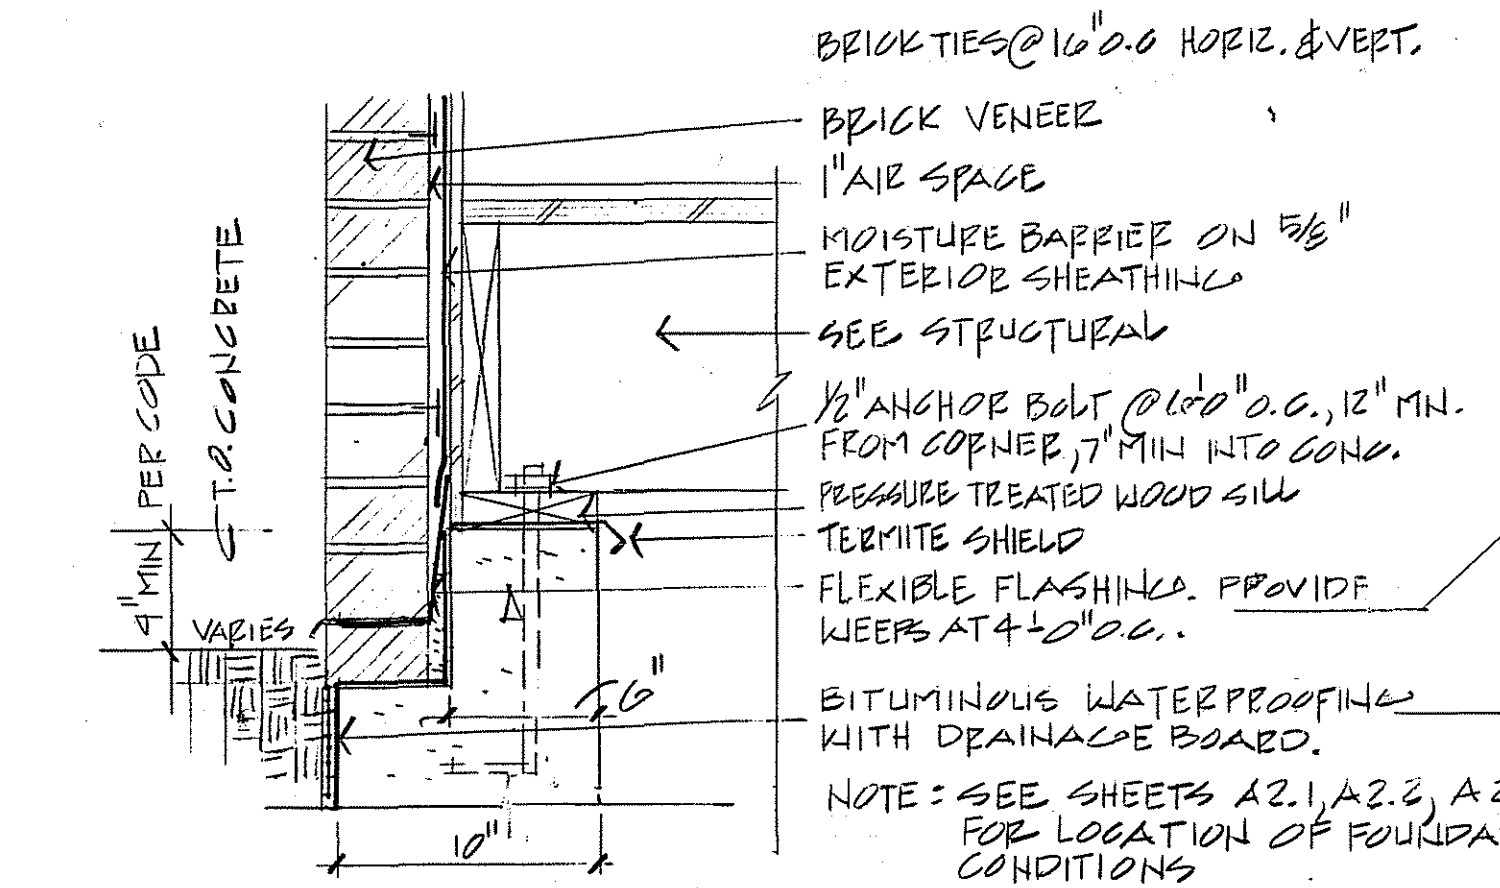 BRICK TIES @ 16" O.C HORIZ. & VERT.
BRICK VENEER
1" AIR SPACE
MOISTURE BARRIER ON 5/8"
EXTERIOR SHEATHING
SEE STRUCTURAL
1/2" ANCHOR BOLT @ 6'-0" O.C., 12" MN.
FROM CORNER, 7" MIN INTO CONC.
PRESSURE TREATED WOOD SILL
TERMITE SHIELD
FLEXIBLE FLASHING. PROVIDE
WEEPS AT 4'-0" O.C..
BITUMINOUS WATERPROOFING
WITH DRAINAGE BOARD.
NOTE: SEE SHEETS A2.1, A2.2, A2
FOR LOCATION OF FOUNDA
CONDITIONS
4" MIN PER CODE
T.O. CONCRETE
VARIES
6"
10"